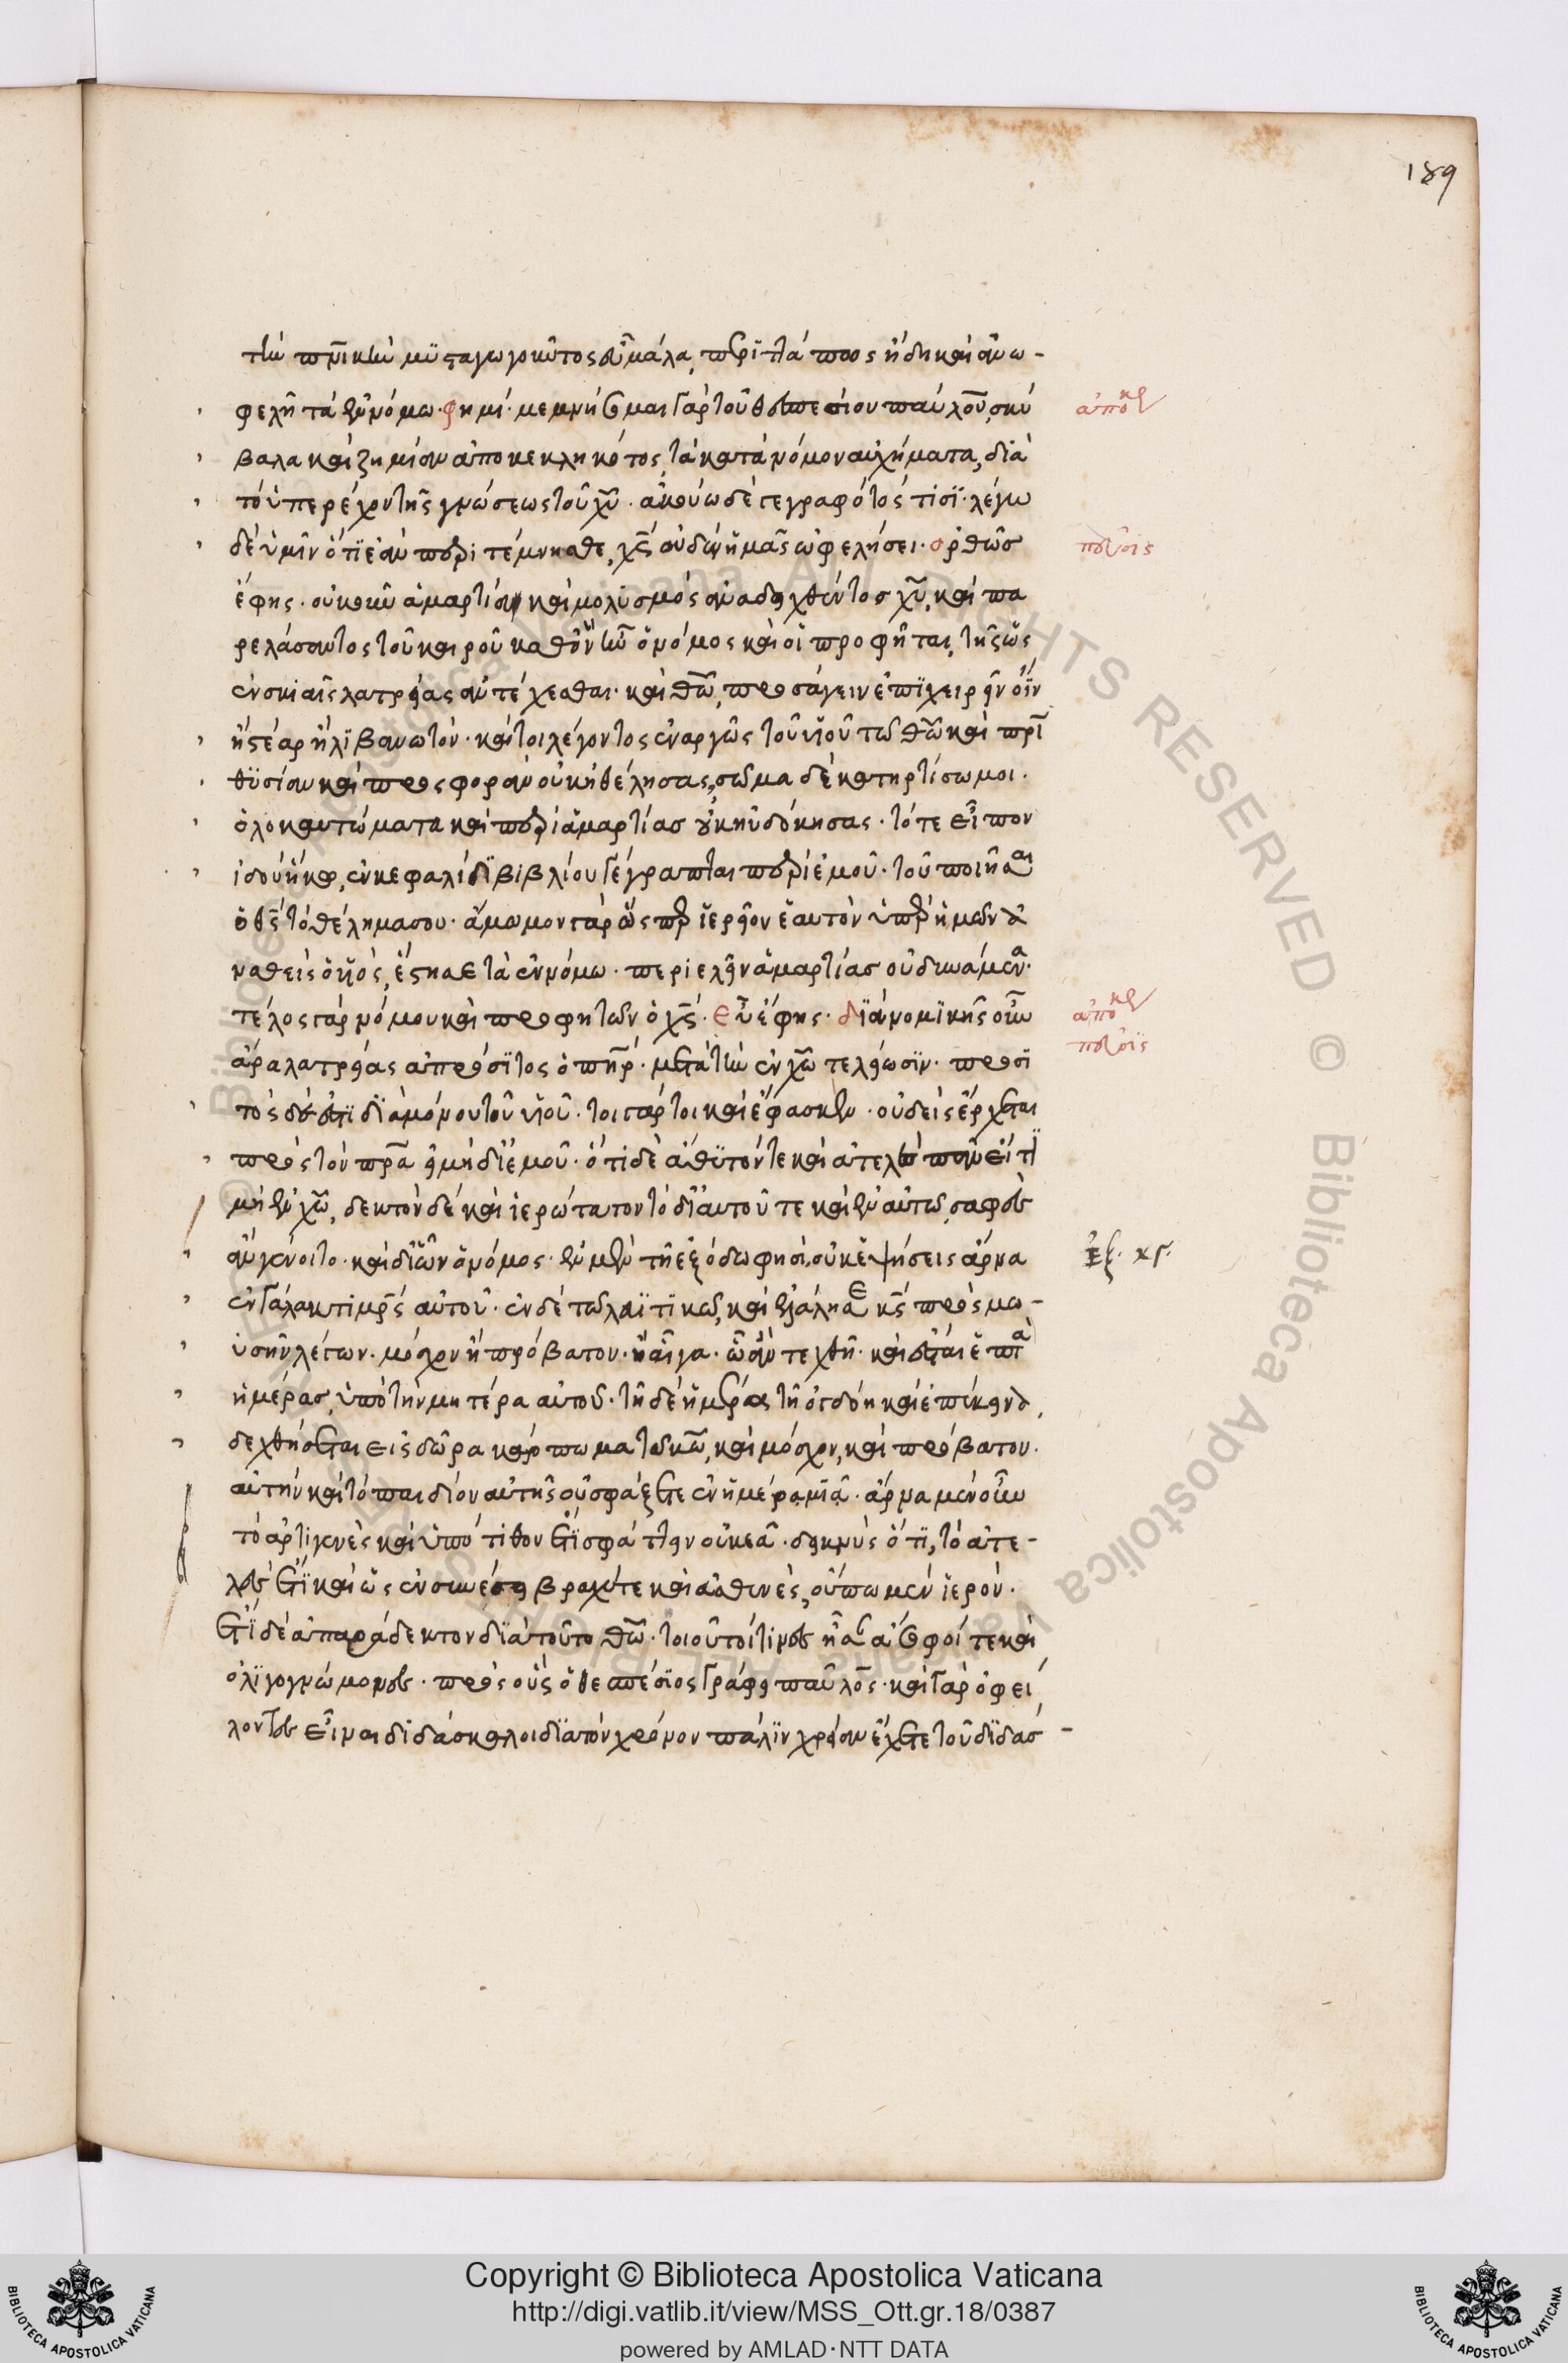 189
τὴν πνικὴν μϋσταγωγοῦντος εὖ μάλα, περὶ τὰ πρὸς ἤδη καὶ ἀνω-
φελῆ τὰ ἐν νόμω. φημί. μεμνήσομαι γὰρ τοῦ θεσπεσίου παύλου, σκύ
βαλα καὶ ζημίαν ἀποκεκληκότος, τὰ κατὰ νόμον αὐχήματα, διὰ
τὸ ὑπερέχον τῆς γνώσεως τοῦ χῦ. ἀκούω δὲ γεγραφότος τισΐ. λέγω
δὲ ὑμῖν ὅτι ἐὰν περιτέμνησθε, χς οὐδὲν ἡμᾶς ὠφελήσει. ὀρθῶς
ἔφης. οὐκοῦν ἁμαρτίαν καὶ μολυσμὸς ἀναδειχθέντος χῦ, καὶ πα
ρελάσαντος τοῦ καιροῦ καθ' ὃν ἦν ὁ νόμος καὶ οἱ προφῆται, τῆς ὡς
ἐν σκιαῖς λατρείας ἀντέχεσθαι. καὶ θῶ, προσάγειν ἐπιχειρεῖν οἶν
ἢ στέαρ ἢ λιβανωτόν. καίτοι λέγοντος ἐναργῶς τοῦ υἱοῦ τῶ θῶ καὶ πρὶ
θυσίαν καὶ προσφορὰν οὐκ ἠθέλησας, σῶμα δὲ κατηρτίσω μοι.
ὁλοκαυτώματα καὶ περὶ ἁμαρτίας οὐκ ηὐδόκησας. τότε εἶπον
ἰδοὺ ἥκω, ἐν κεφαλίδι βιβλίου γέγραπται περὶ ἐμοῦ. τοῦ ποιῆσαι
ὁ θς τὸ θέλημα σου. ἄμωμον γὰρ ὥσπερ ἱερεῖον ἑαυτὸν ὑπὲρ ἡμῶν ἀ
ναθεὶς ὁ υἱός, ἔστησε τὰ ἐν νόμω. περιελεῖν ἁμαρτίας οὐ δυνάμενα.
τέλος γὰρ νόμου καὶ προφητῶν ὁ χς. εὖ ἔφης. διὰ νομικῆς οὖν
ἄρα λατρείας ἀπρόσιτος ὁ πηρ. μετὰ τὴν ἐν χῶ τελείωσιν. προσι
τὸς δὲ ὅτι διὰ μόνου τοῦ υἱοῦ. τοιγάρτοι καὶ ἔφασκεν. οὐδεὶς ἔρχεται
πρὸς τὸν πρα εἰ μὴ δι' ἐμοῦ. ὅτι δὲ ἄθυτόν τε καὶ ἀτελὲς πᾶν εἴ τι
μὴ ἐν χῶ, δεκτὸν δὲ καὶ ἱερώτατον τὸ δι' αὐτοῦ τε καὶ ἐν αὐτῶ, σαφὲς
ἂν γένοιτο. καὶ δι' ὧν ὁ νόμος. ἐν μὲν τῆ ἐξόδω φησὶν, οὐκ ἑψήσεις ἄρνα
ἐν γάλακτι μρς αὐτοῦ. ἐν δὲ τῶ λευιτικῶ, καὶ ἐλάλησε κς πρὸς μω-
ϋσῆν λέγων. μόσχον ἢ πρόβατον. ἢ αἶγα. ὡς ἂν τεχθῆ. καὶ ἔσται ἑπτὰ
ἡμέρας, ὑπὸ τὴν μητέρα αὐτοῦ. τῆ δὲ ἡμέρα τῆ ὀγδόη καὶ ἐπέκεινα,
δεχθήσεται εἰς δῶρα κάρπωμα τῶ κῶ, καὶ μόσχον, καὶ πρόβατον.
αὐτὴν καὶ τὸ παιδίον αὐτῆς οὐ σφάξετε ἐν ἡμέρα μιᾶ. ἄρνα μὲν οὖν
τὸ ἀρτιγενὲς καὶ ὑπότιτθον ἔτι σφάττειν οὐκ ἐᾶ. δεικνὺς ὅτι, τὸ ἀτε-
λὲς ἔτι καὶ ὡς ἐν συνέσει βραχύ τε καὶ ἀσθενὲς, οὔπω μὲν ἱερόν.
ἔτι δὲ ἀπαράδεκτον διὰ τοῦτο θῶ. τοιοῦτοί τινες ἦσαν ἄσοφοί τε καὶ
ὀλιγογνώμονες. πρὸς οὓς ὁ θεσπέσιος γράφει παῦλος. καὶ γὰρ ὀφεί
λοντες εἶναι διδάσκαλοι διὰ τὸν χρόνον πάλιν χρείαν ἔχετε τοῦ διδάσ-
ἀποκρ
πεῦσις
ἀποκρ
πεῦσις
Ἐξ. κγ.
© Biblioteca Apostolica Vaticana ALL RIGHTS RESERVED
Copyright © Biblioteca Apostolica Vaticana
http://digi.vatlib.it/view/MSS_Ott.gr.18/0387
powered by AMLAD·NTT DATA
BIBLIOTECA APOSTOLICA VATICANA
BIBLIOTECA APOSTOLICA VATICANA